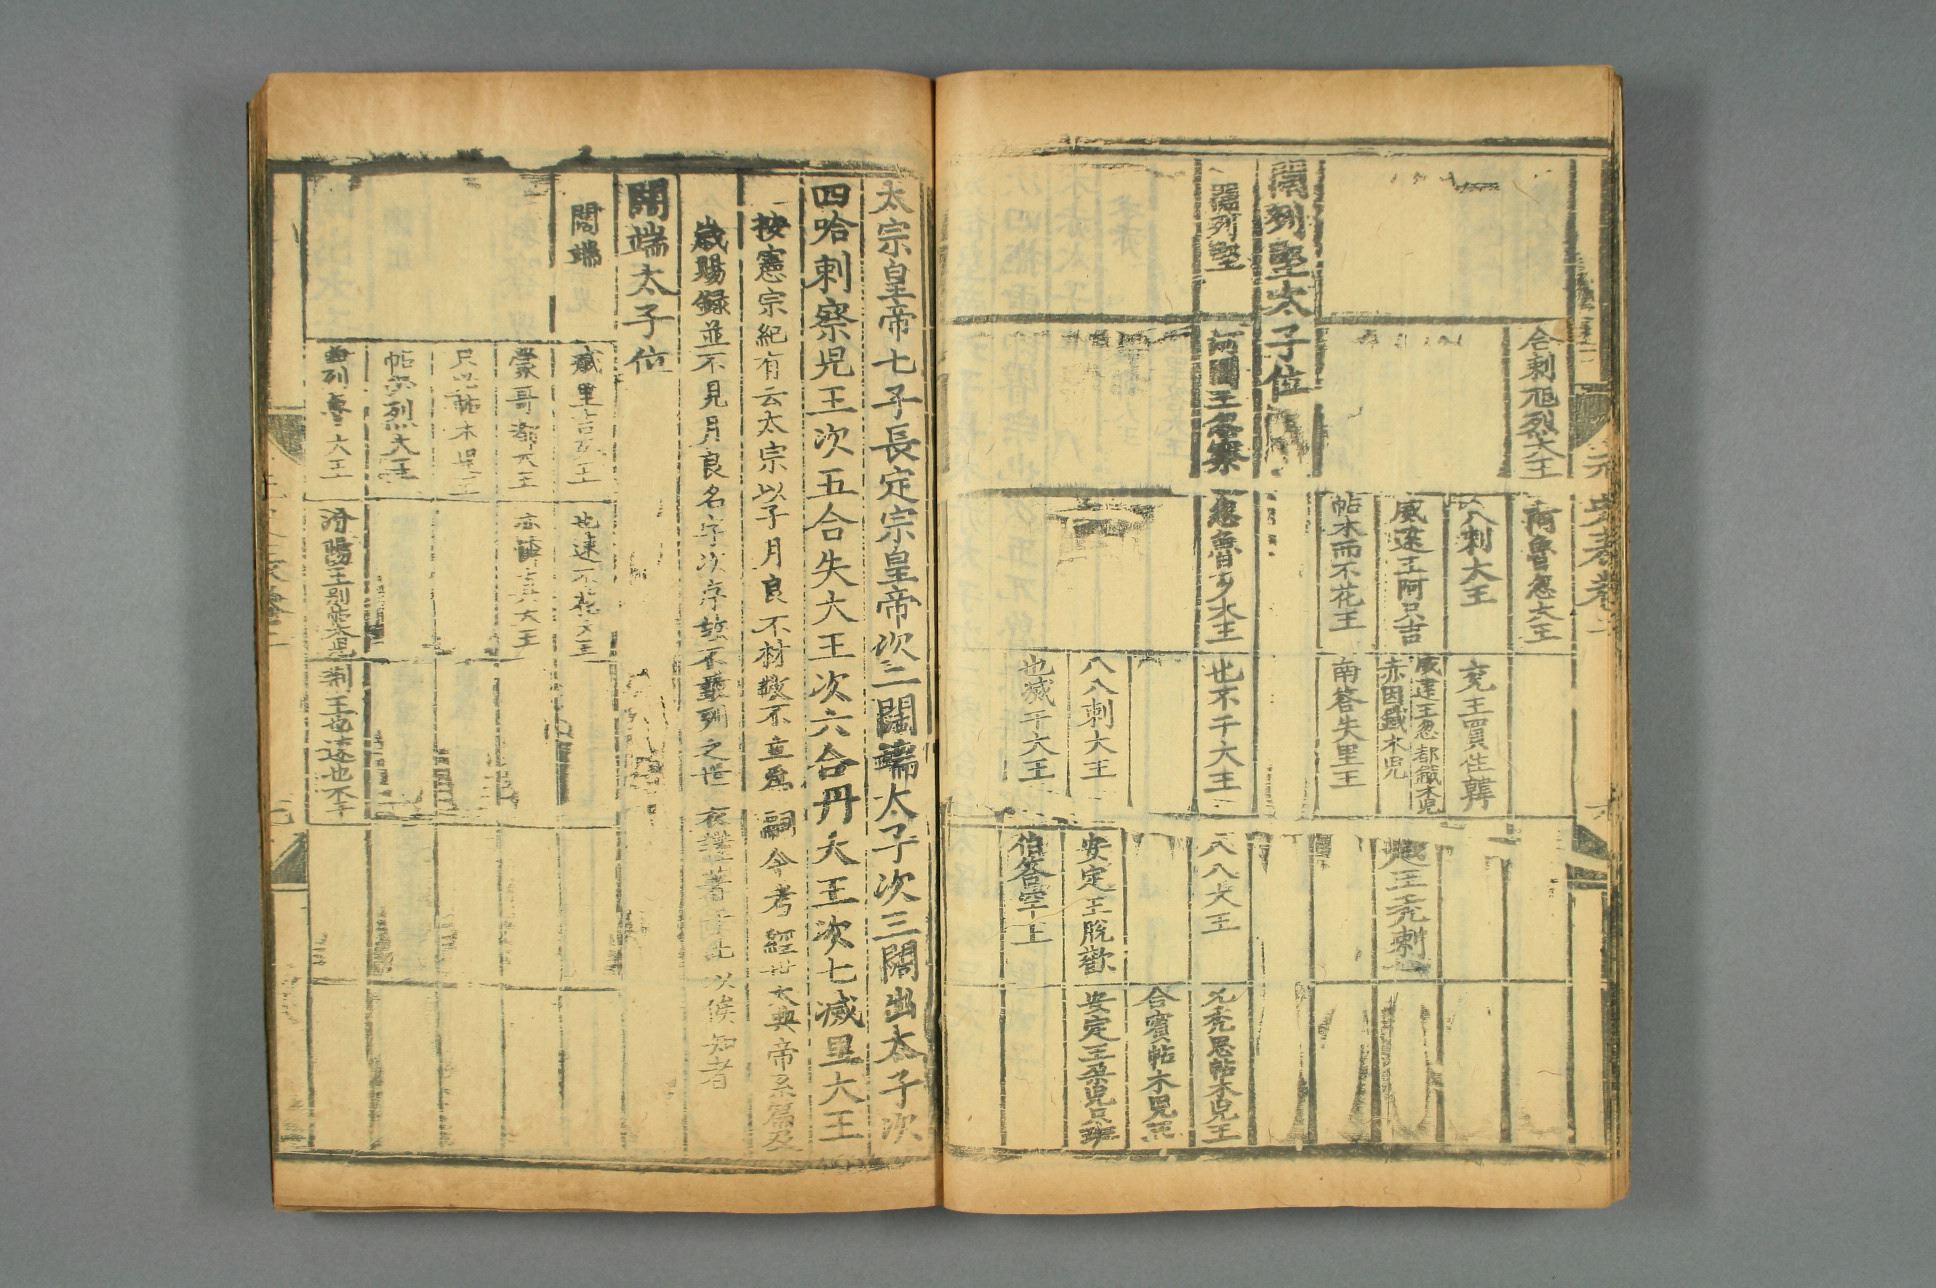 合剌旭烈大王
南魯忽大王
八剌大王
兗王買住韓
威遠王阿只吉
威遠王忽都鐵木兒
赤因鐵木兒
越王禿剌
帖木而不花王
南答失里王
闊列堅太子位
闊列堅
河間王忽察
忽魯歹大王
也不干大王
八八大王
允禿思帖木兒王
合賓帖木兒王
八八剌大王
安定王脫歡
安定王朶兒只班
也滅干大王
伯答罕王
太宗皇帝七子長定宗皇帝次二闊端太子次三闊出太子次
四哈剌察兒王次五合失大王次六合丹大王次七滅里大王
按憲宗紀有云太宗以子月良不材故不立爲嗣今考經世大典帝系篇及
歲賜錄並不見月良名字次序故不敢列之世表謹著于此以俟知者
闊端太子位
闊端
滅里吉歹王
也速不花大王
蒙哥都大王
亦憐真大王
只必帖木兒王
帖必烈大王
曲列魯大王
汾陽王別帖木兒
荊王也速也不干